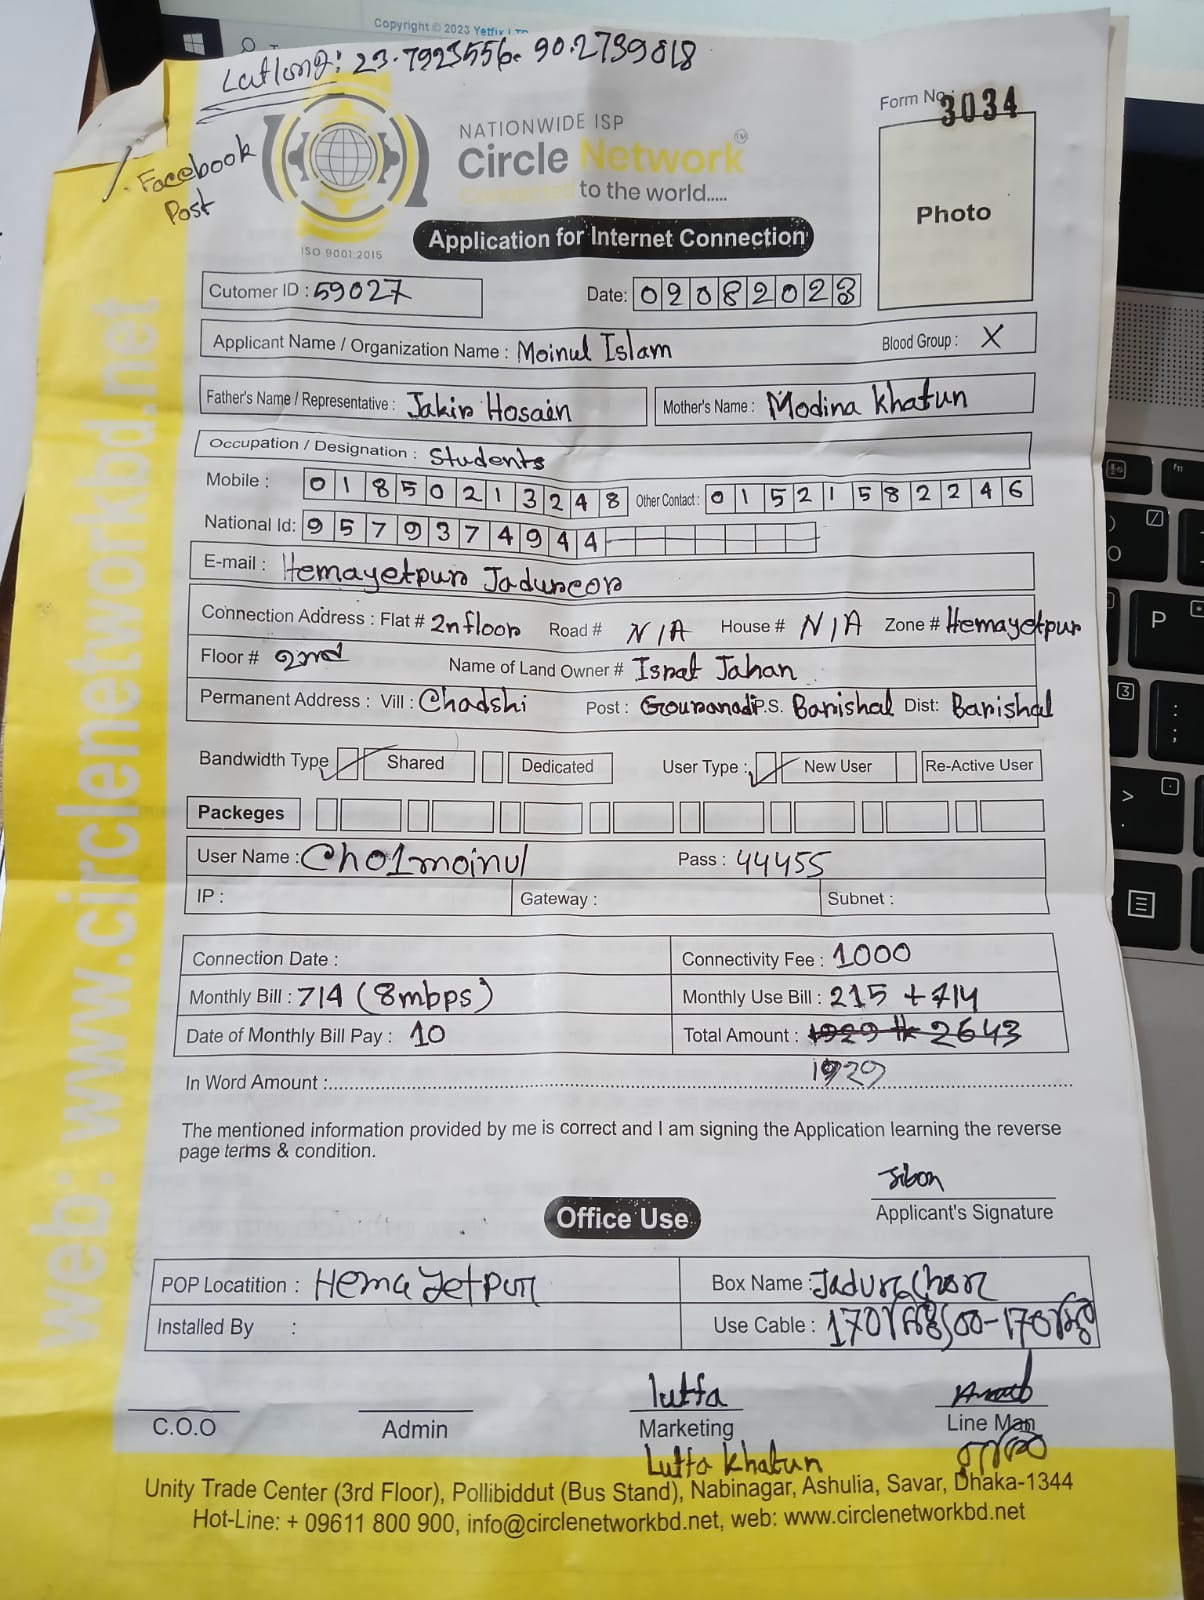 Copyright © 2023 Yetfix LTD
Latlong: 23.7923556- 90.2739818
Facebook
Post
NATIONWIDE ISP
Circle Network ™
Connected to the world.....
ISO 9001:2015
Form No: 3034
Photo
Application for Internet Connection
Cutomer ID : 59027 Date: 02082023
Applicant Name / Organization Name : Moinul Islam Blood Group : X
Father's Name / Representative : Jakir Hosain Mother's Name : Modina Khatun
Occupation / Designation : Students
Mobile : 01850213248 Other Contact : 01521582246
National Id: 9579374944
E-mail : Hemayetpur Jadurcor
Connection Address : Flat # 2nfloor Road # N/A House # N/A Zone # Hemayetpur
Floor # 2nd Name of Land Owner # Israt Jahan
Permanent Address : Vill : Chadshi Post : Gouranadi P.S. Barishal Dist: Barishal
Bandwidth Type Shared Dedicated User Type : New User Re-Active User
Packeges
User Name : Cho1moinul Pass : 44455
IP : Gateway : Subnet :
Connection Date : Connectivity Fee : 1000
Monthly Bill : 714 (8mbps) Monthly Use Bill : 215 + 714
Date of Monthly Bill Pay : 10 Total Amount : 1929 tk 2643
1929
In Word Amount :
The mentioned information provided by me is correct and I am signing the Application learning the reverse
page terms & condition.
Jibon
Applicant's Signature
Office Use
POP Locatition : Hemayetpur Box Name : Jadurchor
Installed By : Use Cable :
lutfa
C.O.O Admin Marketing Line Man
Lutfa Khatun
Unity Trade Center (3rd Floor), Pollibiddut (Bus Stand), Nabinagar, Ashulia, Savar, Dhaka-1344
Hot-Line: + 09611 800 900, info@circlenetworkbd.net, web: www.circlenetworkbd.net
web: www.circlenetworkbd.net